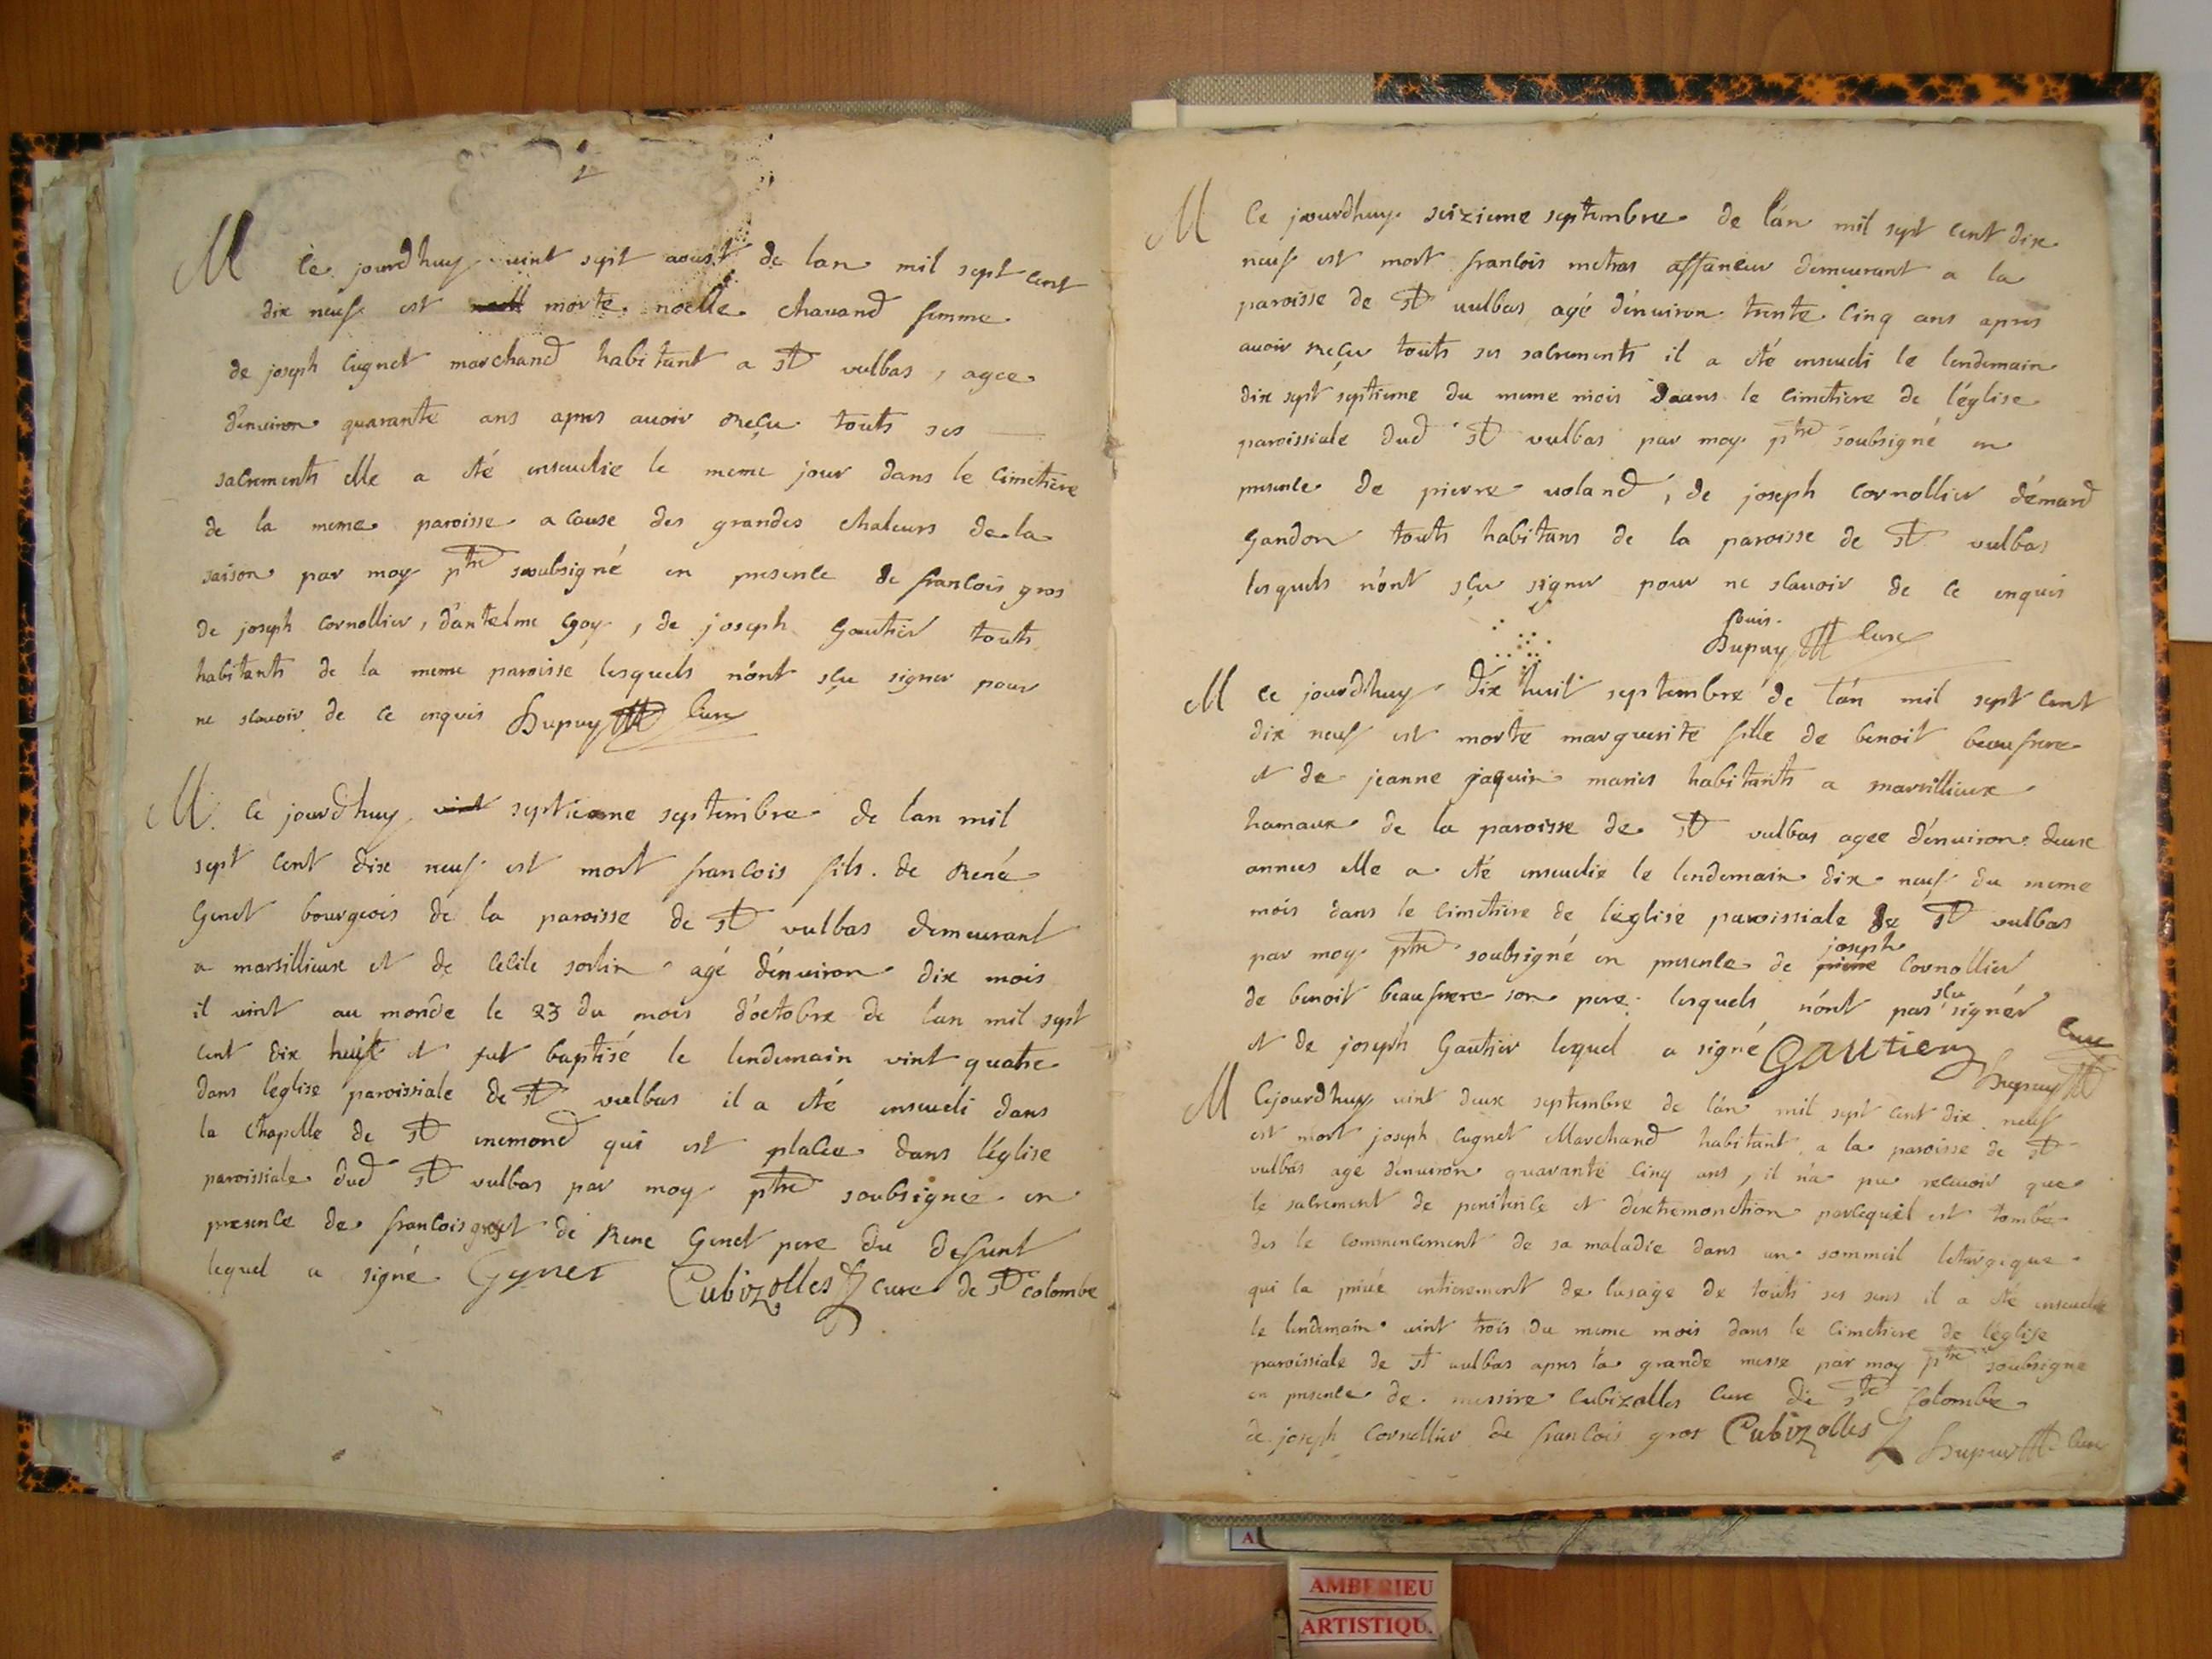 M ce jourdhuy vint sept aoust de lan mil sept cent
dix neuf est morte noelle chavand femme
de joseph cugnet marchand habitant a st vulbas, agee
d'environ quarante ans apres avoir reçu touts ses
sacrements elle a été ensevelie le meme jour dans le cimetiere
de la meme paroisse a cause des grandes chaleurs de la
saison par moy ptre soubsigné en presence de francois gros
de joseph cornollier, d'antelme goy, de joseph Gautier touts
habitants de la meme paroisse lesquels n'ont sçu signer pour
ne scavoir de ce enquis Dupuy curé
M. ce jourdhuy vint septieme septembre de lan mil
sept cent dix neuf est mort francois fils de René
Genet bourgeois de la paroisse de st vulbas demeurant
a marsillieux et de cecile sorlin agé d'environ dix mois
il vint au monde le 23 du mois d'octobre de lan mil sept
cent dix huit et fut baptisé le lendemain vint quatre
dans l'eglise paroissiale de st vulbas il a été enseveli dans
la chapelle de st enemond qui est placée dans l'église
paroissiale dud st vulbas par moy ptre soubsignée en
presence de francois gros et de Rene Genet pere du defunt
lequel a signé Gynet Cubizolles cure de ste colombe
M ce jourdhuy seizieme septembre de l'an mil sept cent dix
neuf est mort francois metras affaneur demeurant a la
paroisse de st vulbas agé d'environ trente cinq ans apres
avoir reçu touts ses sacrements il a été enseveli le lendemain
dix sept septieme du meme mois dans le cimetiere de l'église
paroissiale dud st vulbas par moy ptre soubsigné en
presence de pierre voland, de joseph cornollier d'émard
Gandon touts habitans de la paroisse de st vulbas
lesquels n'ont sçu signer pour ne scavoir de ce enquis
Dupuy curé
M ce jourdhuy dix huit septembre de l'an mil sept cent
dix neuf est morte marguerite fille de benoit beaufrere
et de jeanne jaquin mariés habitants a marsillieux
hamaux de la paroisse de st vulbas agee d'environ deux
annees elle a été ensevelie le lendemain dix neuf du meme
mois dans le cimetiere de l'église paroissiale de st vulbas
par moy ptre soubsigné en presence de pierre joseph cornollier
de benoit beaufrere son pere lesquels n'ont pas sçu signér
et de joseph Gautier lequel a signé Gautier curé
Dupuy
M Cejourdhuy vint deux septembre de l'an mil sept cent dix neuf
est mort joseph cugnet Marchand habitant a la paroisse de st
vulbas age d'environ quarante cinq ans, il n'a pu recevoir que
le sacrement de penitence et d'extremonction parcequil est tombé
des le commencement de sa maladie dans un sommeil letargique
qui la privé entierement de l'usage de touts ses sens il a été enseveli
le lendemain vint trois du meme mois dans le cimetiere de l'église
paroissiale de st vulbas apres la grande messe par moy ptre soubsigne
en presence de messire cubizolles curé de ste colombe
de joseph cornollier de francois gros Cubizolles Dupuy curé
AMBERIEU
ARTISTIQU